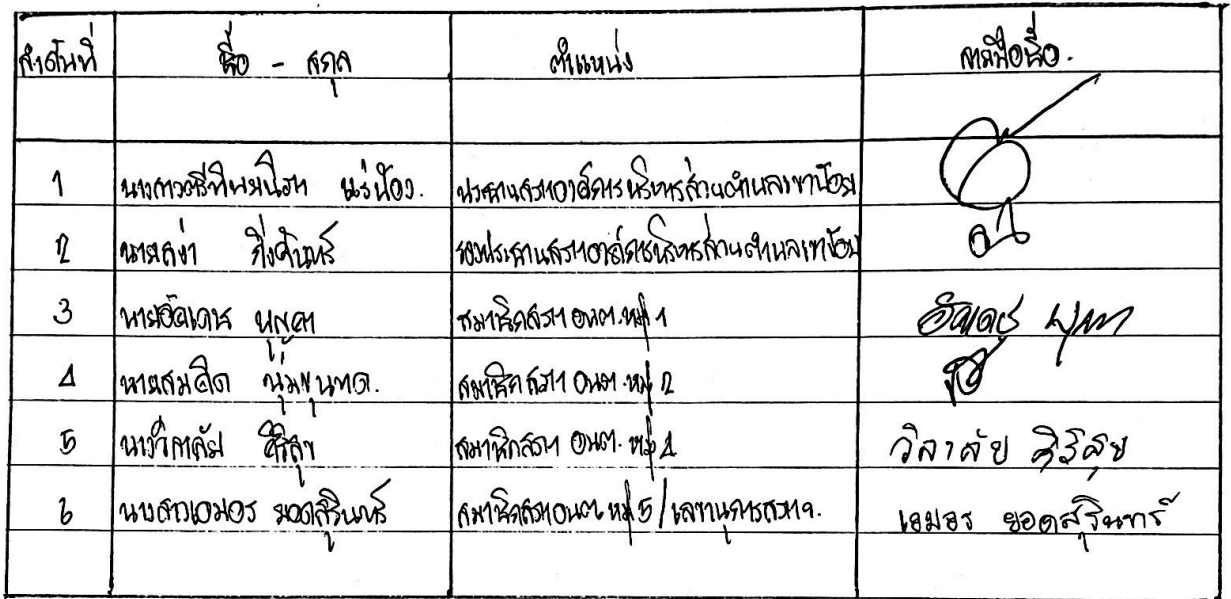 ลำดับที่ ชื่อ - สกุล ตำแหน่ง ลายมือชื่อ.
1 ประธานสภาองค์การบริหารส่วนตำบลเขาน้อย
2 นายสง่า กิ่งคันทร์ รองประธานสภาองค์การบริหารส่วนตำบลเขาน้อย
3 นายอัฒเดช บุญคา สมาชิกสภา อบต. หมู่ 1 อัฒเดช
4 นายสมคิด นุ่มขุนทด. สมาชิกสภา อบต. หมู่ 2
5 นางวิลาลัย ศิริสุข สมาชิกสภา อบต. หมู่ 4 วิลาลัย ศิริสุข
6 นางสาวเอมอร ยอดสุรินทร์ สมาชิกสภา อบต. หมู่ 5 / เลขานุการสภาฯ. เอมอร ยอดสุรินทร์